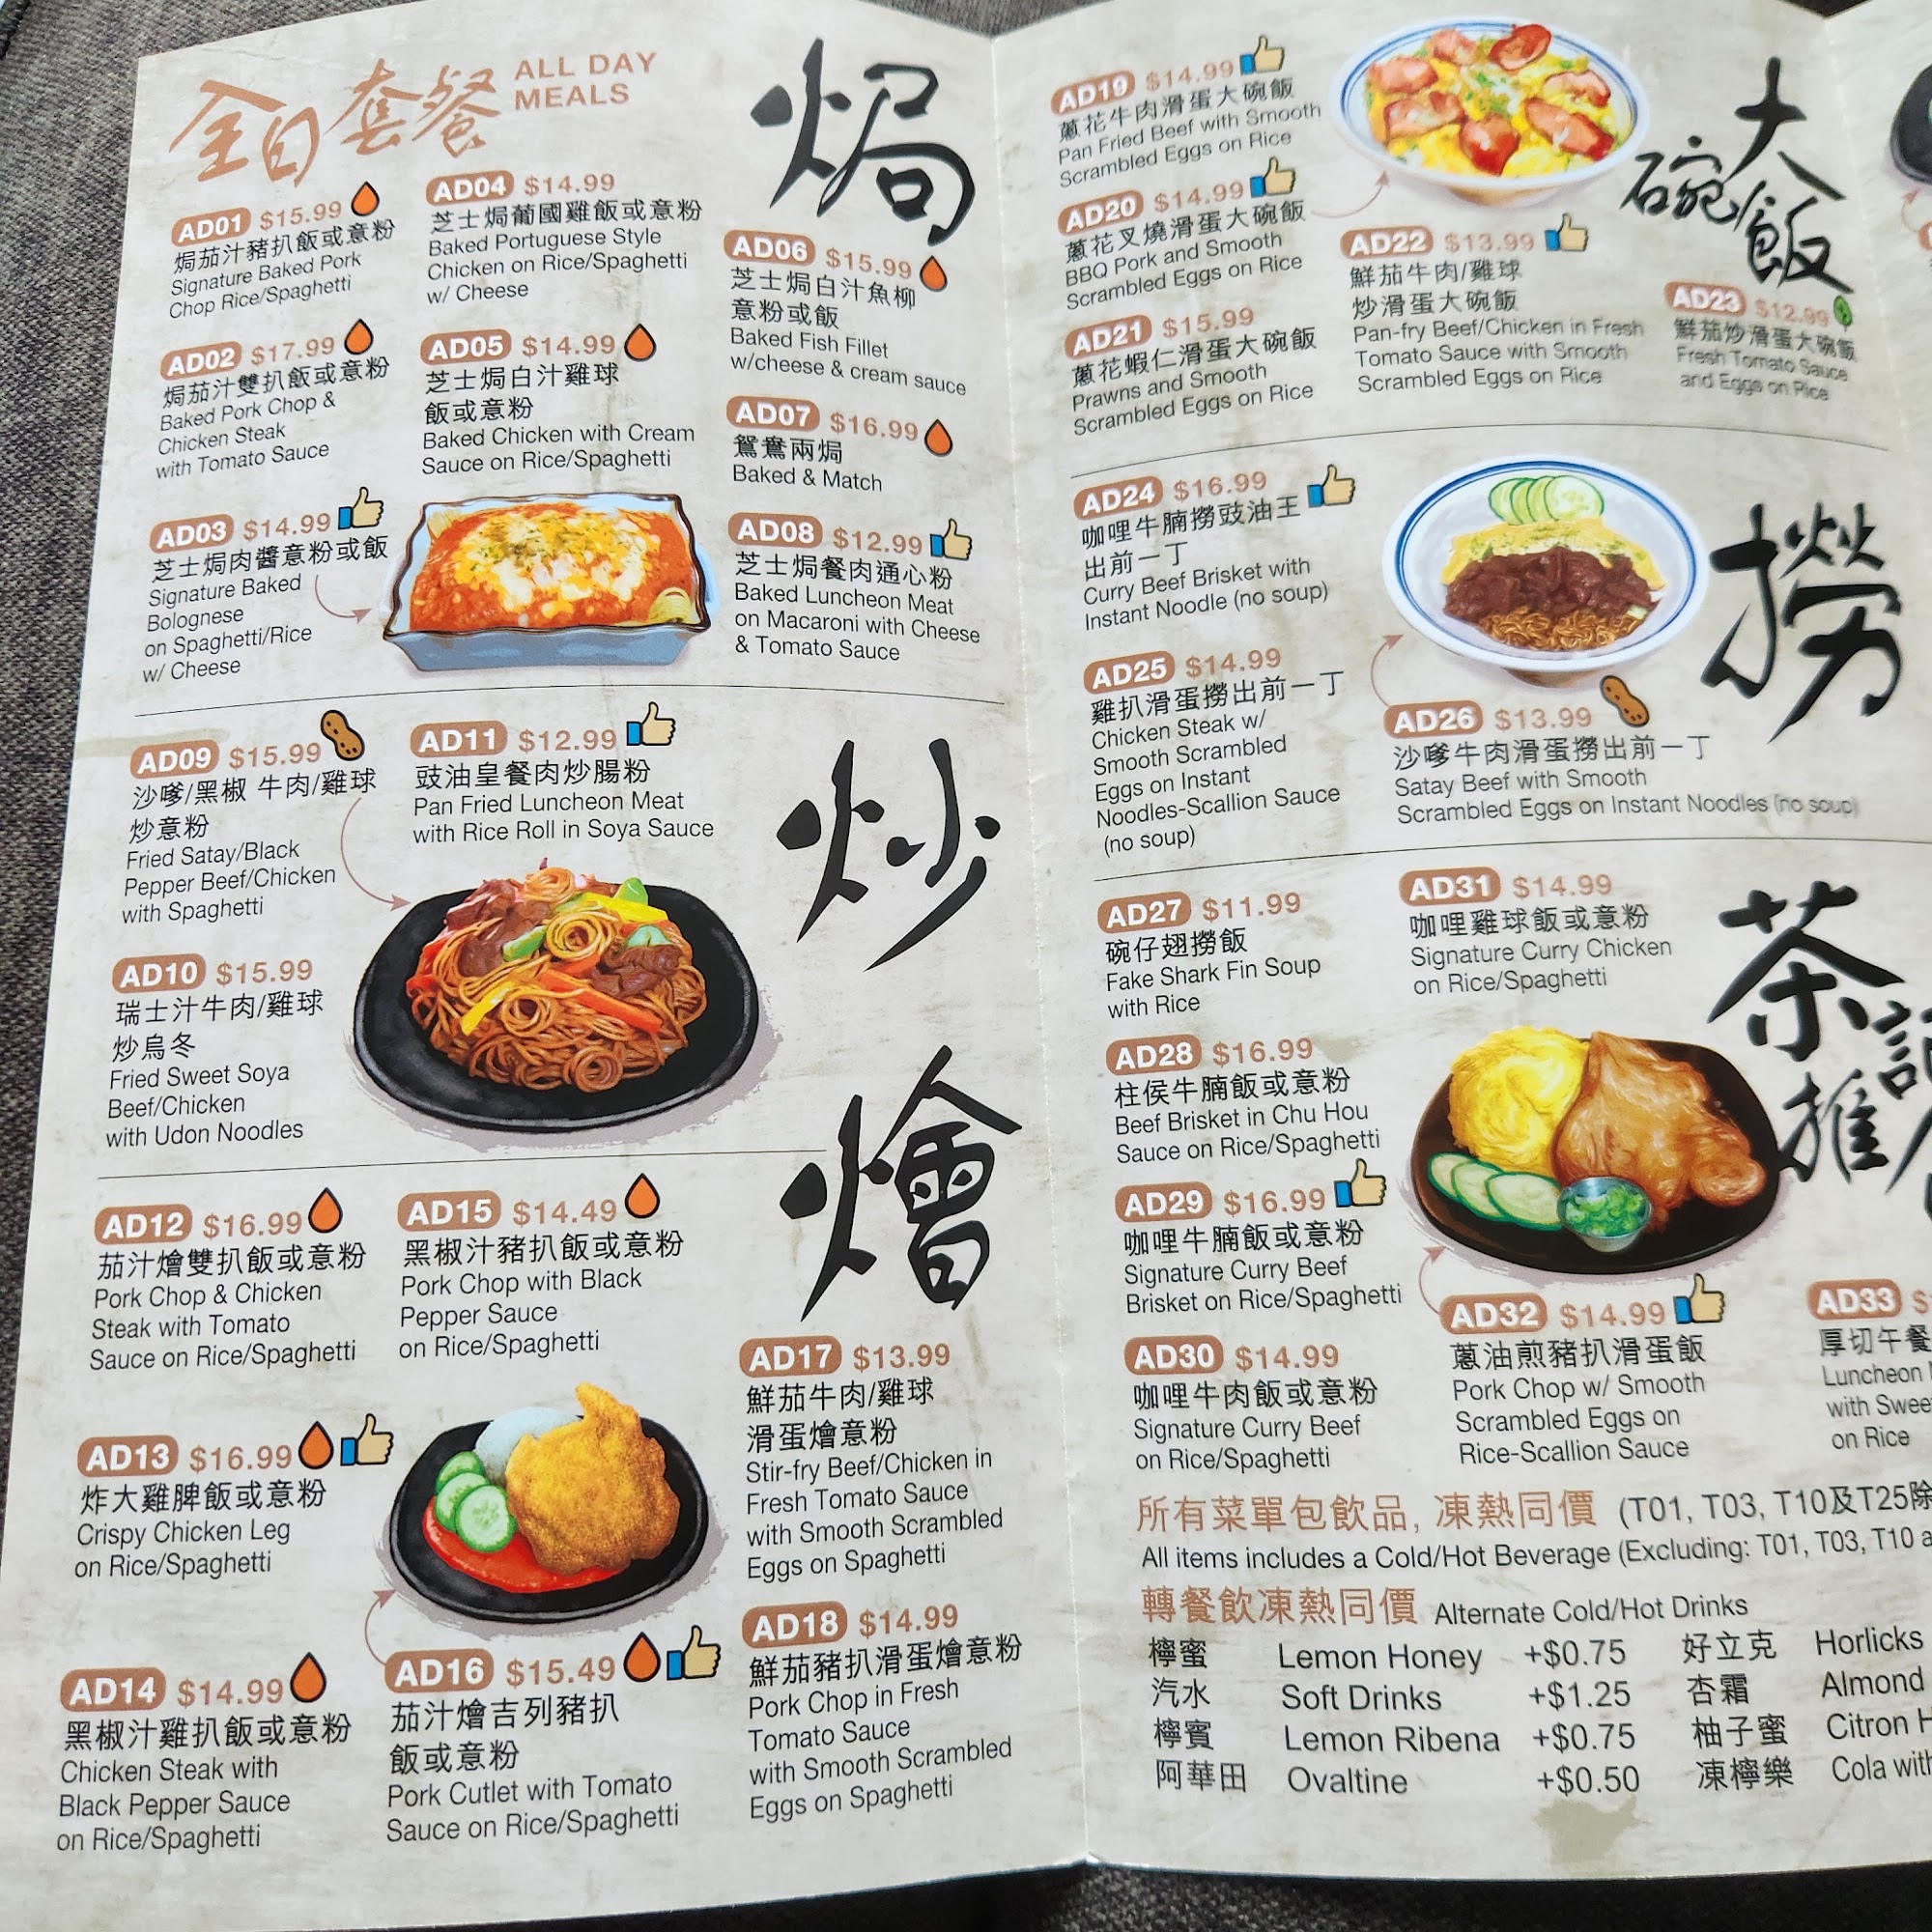 全日套餐
ALL DAY
MEALS
焗
AD01 $15.99
焗茄汁豬扒飯或意粉
Signature Baked Pork
Chop Rice/Spaghetti
AD02 $17.99
焗茄汁雙扒飯或意粉
Baked Pork Chop &
Chicken Steak
with Tomato Sauce
AD03 $14.99
芝士焗肉醬意粉或飯
Signature Baked
Bolognese
on Spaghetti/Rice
w/ Cheese
AD04 $14.99
芝士焗葡國雞飯或意粉
Baked Portuguese Style
Chicken on Rice/Spaghetti
w/ Cheese
AD05 $14.99
芝士焗白汁雞球
飯或意粉
Baked Chicken with Cream
Sauce on Rice/Spaghetti
AD06 $15.99
芝士焗白汁魚柳
意粉或飯
Baked Fish Fillet
w/cheese & cream sauce
AD07 $16.99
鴛鴦兩焗
Baked & Match
AD08 $12.99
芝士焗餐肉通心粉
Baked Luncheon Meat
on Macaroni with Cheese
& Tomato Sauce
炒
AD09 $15.99
沙嗲/黑椒 牛肉/雞球
炒意粉
Fried Satay/Black
Pepper Beef/Chicken
with Spaghetti
AD10 $15.99
瑞士汁牛肉/雞球
炒烏冬
Fried Sweet Soya
Beef/Chicken
with Udon Noodles
AD11 $12.99
豉油皇餐肉炒腸粉
Pan Fried Luncheon Meat
with Rice Roll in Soya Sauce
燴
AD12 $16.99
茄汁燴雙扒飯或意粉
Pork Chop & Chicken
Steak with Tomato
Sauce on Rice/Spaghetti
AD13 $16.99
炸大雞脾飯或意粉
Crispy Chicken Leg
on Rice/Spaghetti
AD14 $14.99
黑椒汁雞扒飯或意粉
Chicken Steak with
Black Pepper Sauce
on Rice/Spaghetti
AD15 $14.49
黑椒汁豬扒飯或意粉
Pork Chop with Black
Pepper Sauce
on Rice/Spaghetti
AD16 $15.49
茄汁燴吉列豬扒
飯或意粉
Pork Cutlet with Tomato
Sauce on Rice/Spaghetti
AD17 $13.99
鮮茄牛肉/雞球
滑蛋燴意粉
Stir-fry Beef/Chicken in
Fresh Tomato Sauce
with Smooth Scrambled
Eggs on Spaghetti
AD18 $14.99
鮮茄豬扒滑蛋燴意粉
Pork Chop in Fresh
Tomato Sauce
with Smooth Scrambled
Eggs on Spaghetti
大碗飯
AD19 $14.99
蔥花牛肉滑蛋大碗飯
Pan Fried Beef with Smooth
Scrambled Eggs on Rice
AD20 $14.99
蔥花叉燒滑蛋大碗飯
BBQ Pork and Smooth
Scrambled Eggs on Rice
AD21 $15.99
蔥花蝦仁滑蛋大碗飯
Prawns and Smooth
Scrambled Eggs on Rice
AD22 $13.99
鮮茄牛肉/雞球
炒滑蛋大碗飯
Pan-fry Beef/Chicken in Fresh
Tomato Sauce with Smooth
Scrambled Eggs on Rice
AD23 $12.99
鮮茄炒滑蛋大碗飯
Fresh Tomato Sauce
and Eggs on Rice
撈
AD24 $16.99
咖哩牛腩撈豉油王
出前一丁
Curry Beef Brisket with
Instant Noodle (no soup)
AD25 $14.99
雞扒滑蛋撈出前一丁
Chicken Steak w/
Smooth Scrambled
Eggs on Instant
Noodles-Scallion Sauce
(no soup)
AD26 $13.99
沙嗲牛肉滑蛋撈出前一丁
Satay Beef with Smooth
Scrambled Eggs on Instant Noodles (no soup)
茶記推
AD27 $11.99
碗仔翅撈飯
Fake Shark Fin Soup
with Rice
AD28 $16.99
柱侯牛腩飯或意粉
Beef Brisket in Chu Hou
Sauce on Rice/Spaghetti
AD29 $16.99
咖哩牛腩飯或意粉
Signature Curry Beef
Brisket on Rice/Spaghetti
AD30 $14.99
咖哩牛肉飯或意粉
Signature Curry Beef
on Rice/Spaghetti
AD31 $14.99
咖哩雞球飯或意粉
Signature Curry Chicken
on Rice/Spaghetti
AD32 $14.99
蔥油煎豬扒滑蛋飯
Pork Chop w/ Smooth
Scrambled Eggs on
Rice-Scallion Sauce
AD33 $
厚切午餐
Luncheon
with Swee
on Rice
所有菜單包飲品, 凍熱同價 (T01, T03, T10及T25除
All items includes a Cold/Hot Beverage (Excluding: T01, T03, T10 a
轉餐飲凍熱同價 Alternate Cold/Hot Drinks
檸蜜 Lemon Honey +$0.75 好立克 Horlicks
汽水 Soft Drinks +$1.25 杏霜 Almond
檸賓 Lemon Ribena +$0.75 柚子蜜 Citron H
阿華田 Ovaltine +$0.50 凍檸樂 Cola with